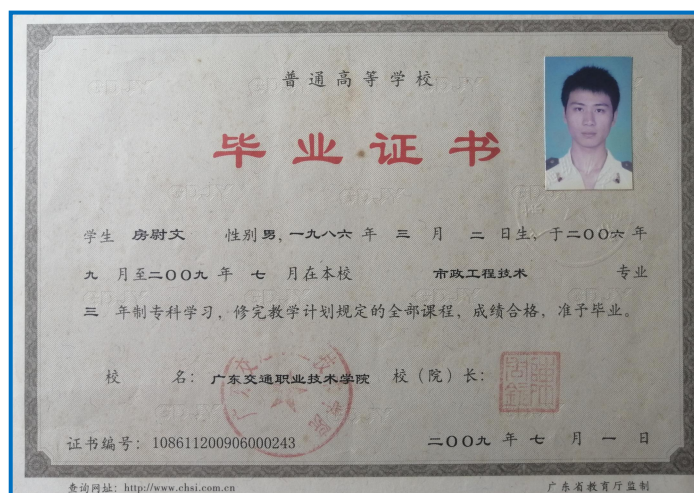 普通高等学校
毕业证书
学生 房尉文 性别 男,一九八六 年 三 月 二 日生,于二〇〇六 年
九 月至二〇〇九 年 七 月在本校 市政工程技术 专业
三 年制专科学习,修完教学计划规定的全部课程,成绩合格,准予毕业。
校 名:广东交通职业技术学院 校(院)长:
证书编号:108611200906000243 二〇〇九 年 七 月 一 日
查询网址:http://www.chsi.com.cn 广东省教育厅监制